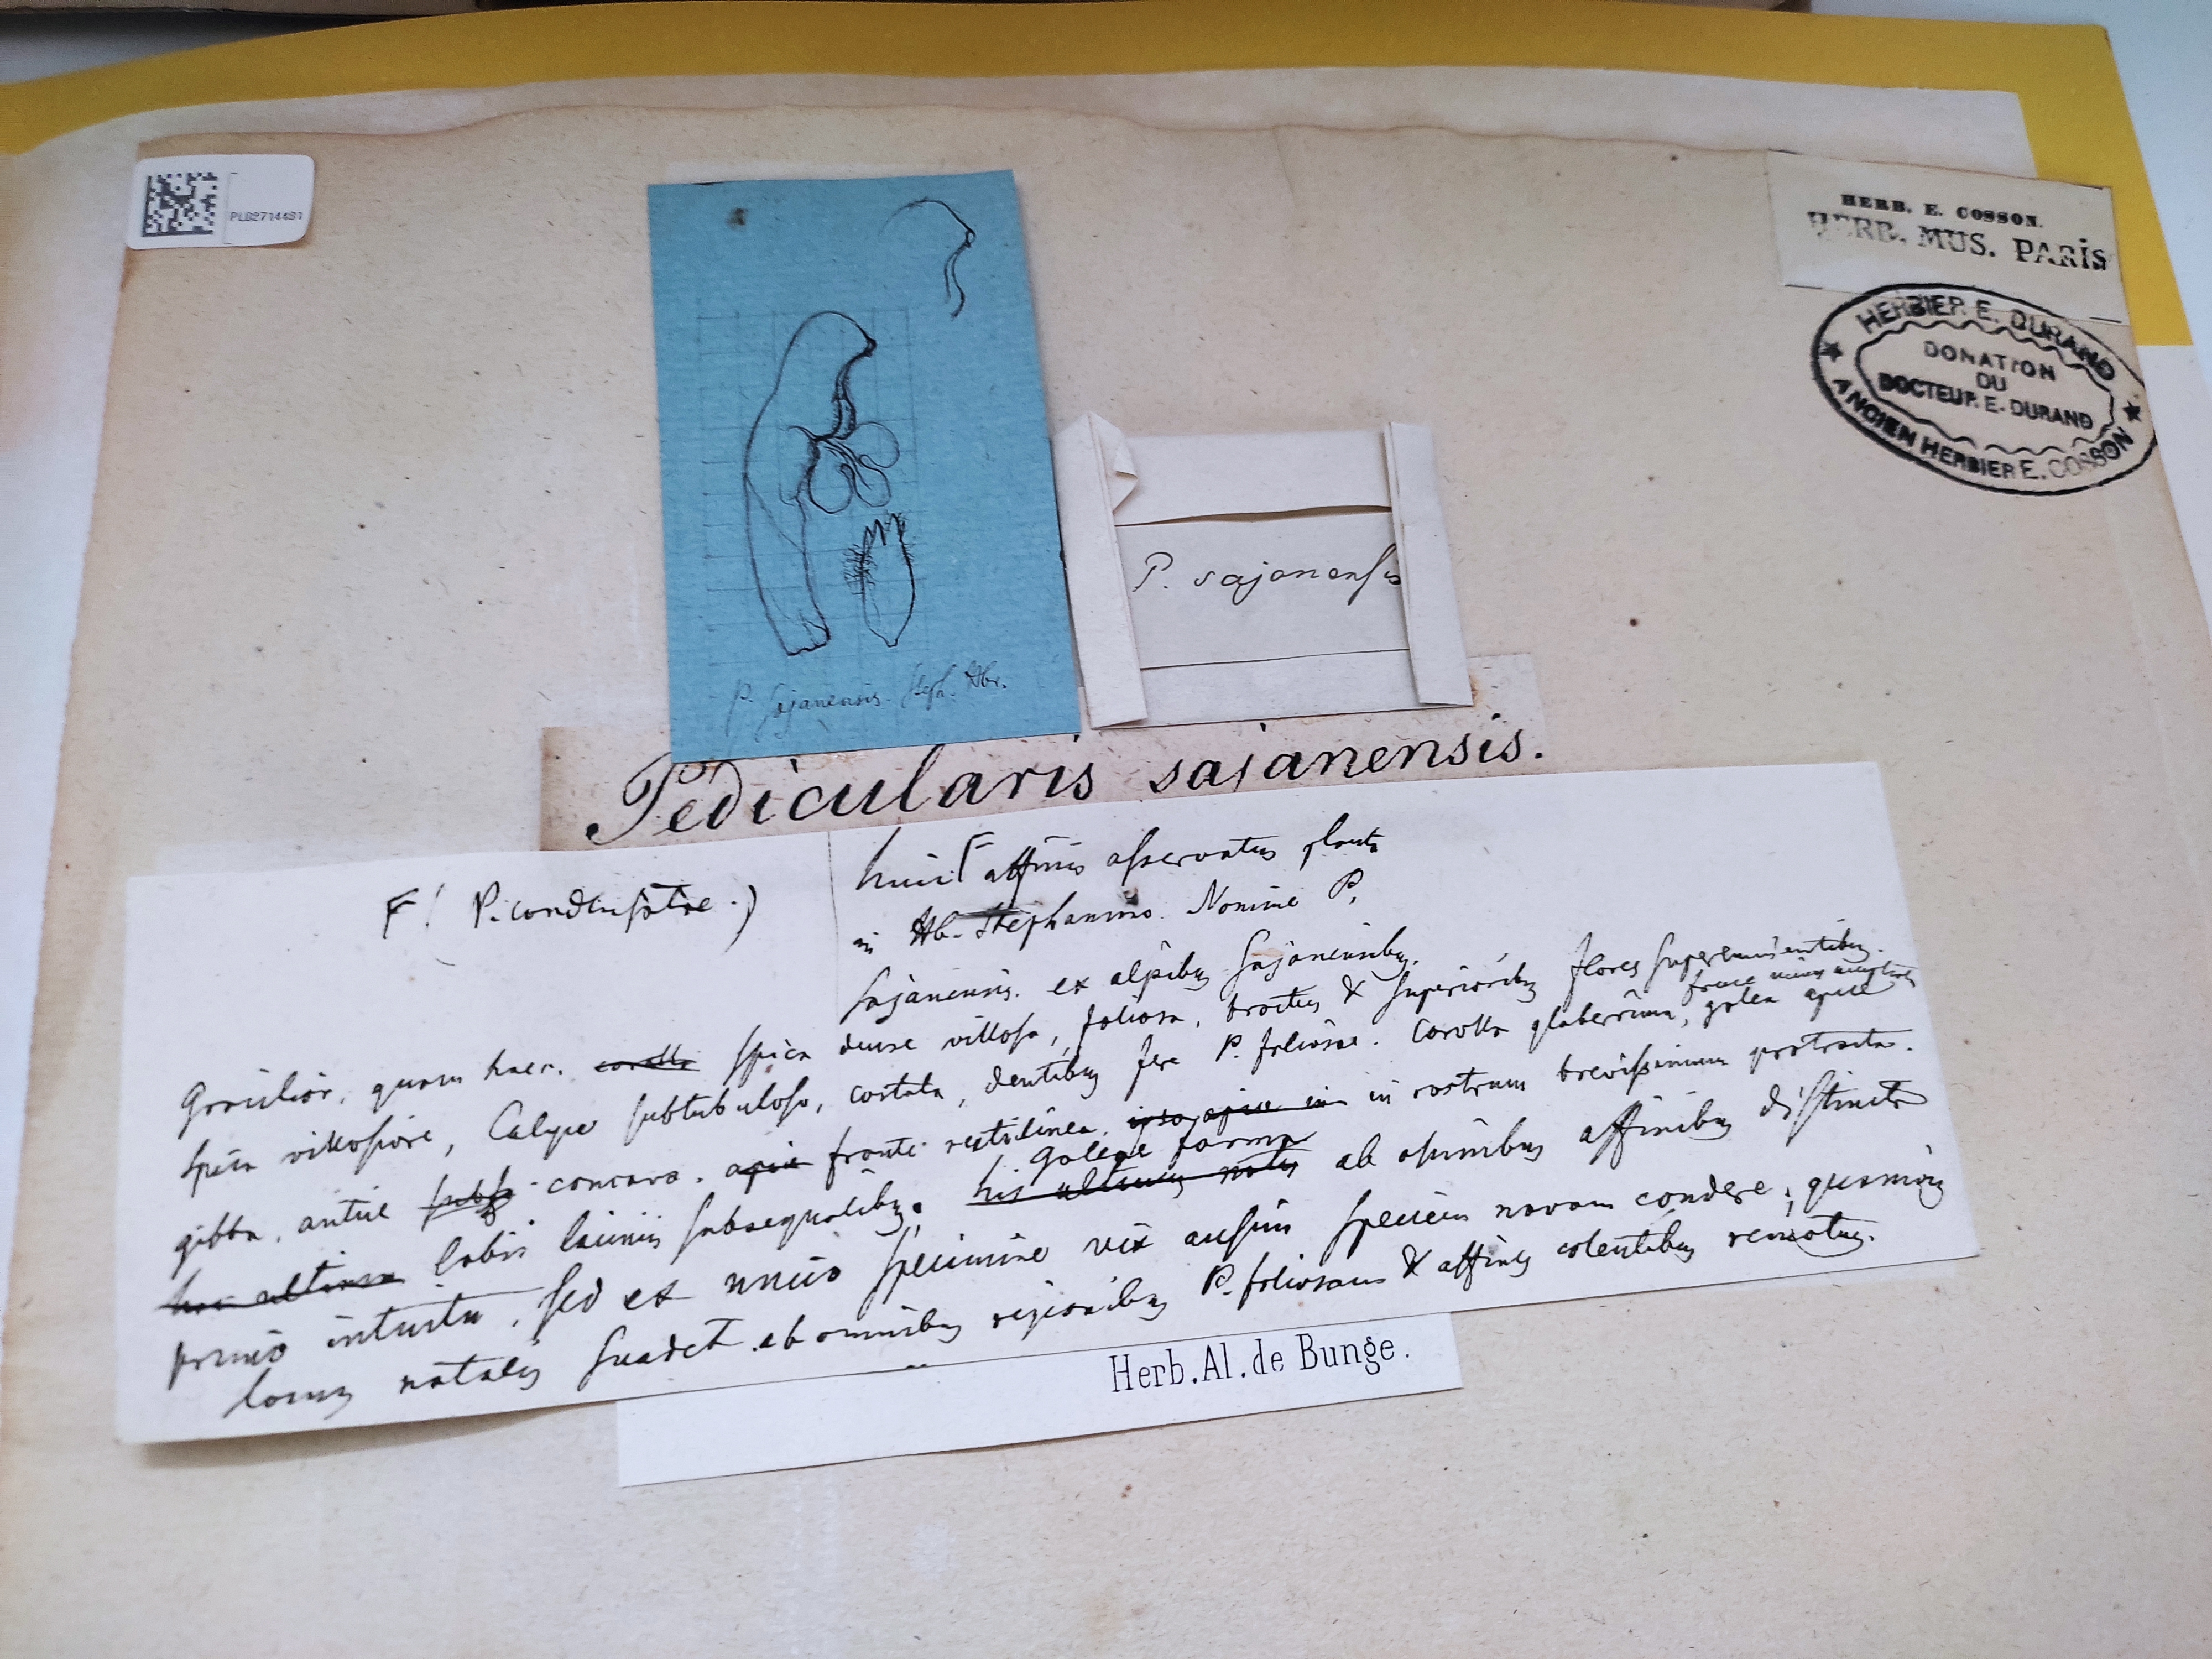 PLG2714481
HERB. E. COSSON.
HERB. MUS. PARIS
HERBIER E. DURAND
DONATION
DU
DOCTEUR E. DURAND
ANCIEN HERBIER E. COSSON
P. Sajanensis. Steph. Hbr.
P. sajanensis
Pedicularis sajanensis.
F! P. condensatae.)
huic Γ affinis asservatur planta
in Hb. Stephanino. Nomine P.
sajanensis. ex alpibus Sajanensibus.
Gracilior, quam haec. corolla spica dense villosa, foliosa, bracteis & superioribus flores supereminentibus.
fauce
spica villosiore, Calyce subtubuloso, costata, dentibus fere P. foliosae. Corolla glaberrima, galea apice
gibba, antice concava. apice fronte rectilinea. ipso apice in in rostrum brevissimum protracta.
galeae forma
hac ultima labii laciniis subaequalibus. his ultimis notis ab omnibus affinibus distincta
primo intuitu, sed ex unico specimine vix ausim speciem novam condere, quamvis
locus natalis suadet ab omnibus regionibus P. foliosam & affines colentibus remotus.
Herb. Al. de Bunge.